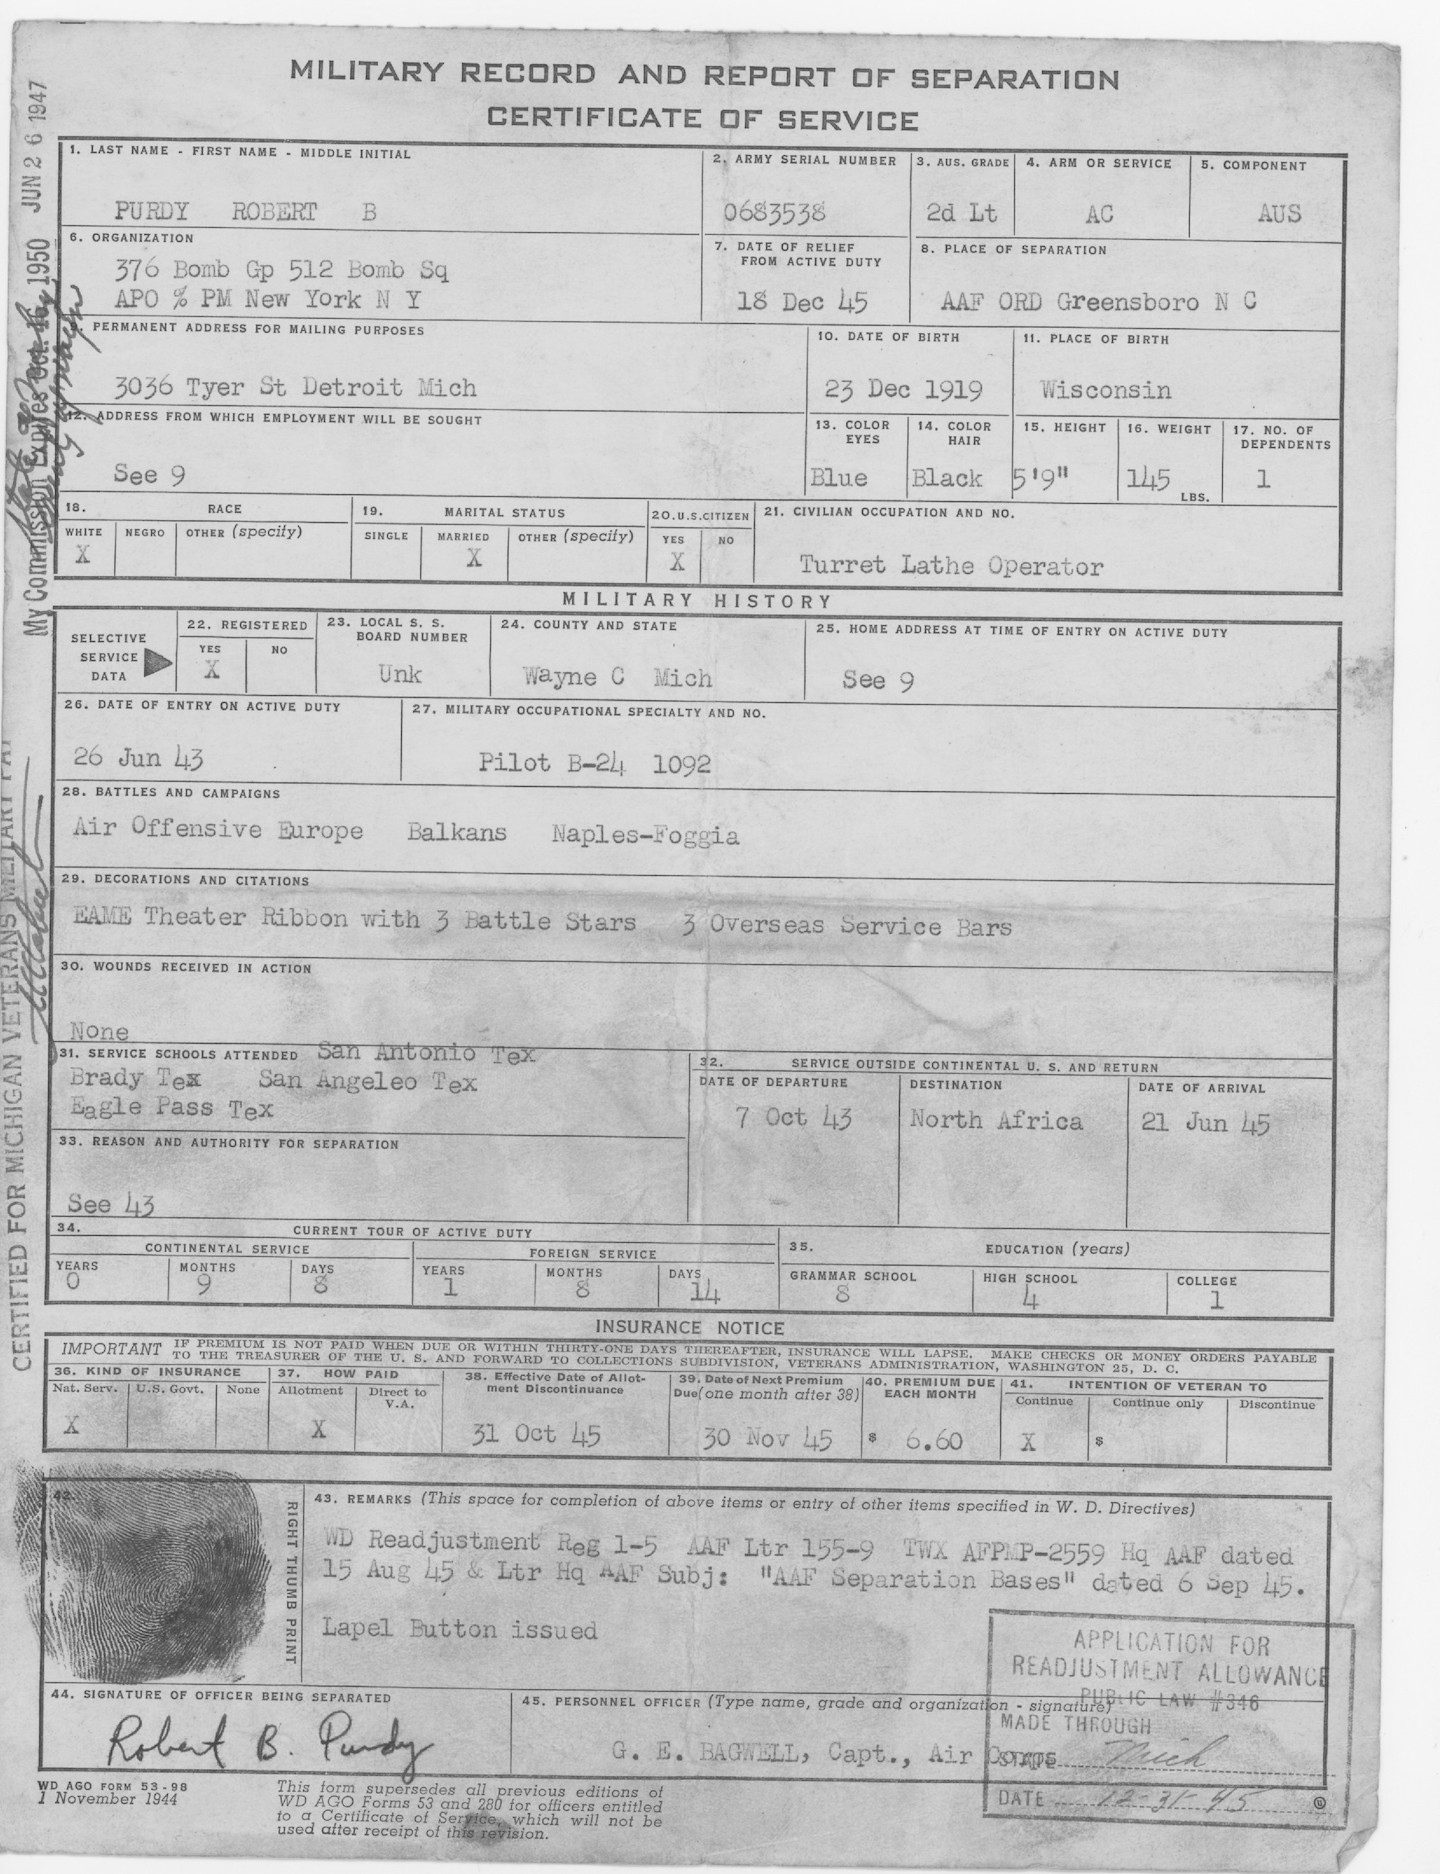 MILITARY RECORD AND REPORT OF SEPARATION
CERTIFICATE OF SERVICE
1. LAST NAME - FIRST NAME - MIDDLE INITIAL
PURDY ROBERT B
2. ARMY SERIAL NUMBER
0683538
3. AUS. GRADE
2d Lt
4. ARM OR SERVICE
AC
5. COMPONENT
AUS
6. ORGANIZATION
376 Bomb Gp 512 Bomb Sq
APO % PM New York N Y
7. DATE OF RELIEF
FROM ACTIVE DUTY
18 Dec 45
8. PLACE OF SEPARATION
AAF ORD Greensboro N C
9. PERMANENT ADDRESS FOR MAILING PURPOSES
3036 Tyer St Detroit Mich
10. DATE OF BIRTH
23 Dec 1919
11. PLACE OF BIRTH
Wisconsin
12. ADDRESS FROM WHICH EMPLOYMENT WILL BE SOUGHT
See 9
13. COLOR
EYES
Blue
14. COLOR
HAIR
Black
15. HEIGHT
5'9"
16. WEIGHT
145
LBS.
17. NO. OF
DEPENDENTS
1
18. RACE
WHITE NEGRO OTHER (specify)
X
19. MARITAL STATUS
SINGLE MARRIED OTHER (specify)
X
20. U.S. CITIZEN
YES NO
X
21. CIVILIAN OCCUPATION AND NO.
Turret Lathe Operator
MILITARY HISTORY
SELECTIVE
SERVICE
DATA
22. REGISTERED
YES NO
X
23. LOCAL S. S.
BOARD NUMBER
Unk
24. COUNTY AND STATE
Wayne C Mich
25. HOME ADDRESS AT TIME OF ENTRY ON ACTIVE DUTY
See 9
26. DATE OF ENTRY ON ACTIVE DUTY
26 Jun 43
27. MILITARY OCCUPATIONAL SPECIALTY AND NO.
Pilot B-24 1092
28. BATTLES AND CAMPAIGNS
Air Offensive Europe Balkans Naples-Foggia
29. DECORATIONS AND CITATIONS
EAME Theater Ribbon with 3 Battle Stars 3 Overseas Service Bars
30. WOUNDS RECEIVED IN ACTION
None
31. SERVICE SCHOOLS ATTENDED San Antonio Tex
Brady Tex San Angeleo Tex
Eagle Pass Tex
32. SERVICE OUTSIDE CONTINENTAL U. S. AND RETURN
DATE OF DEPARTURE DESTINATION DATE OF ARRIVAL
7 Oct 43 North Africa 21 Jun 45
33. REASON AND AUTHORITY FOR SEPARATION
See 43
34. CURRENT TOUR OF ACTIVE DUTY
CONTINENTAL SERVICE FOREIGN SERVICE
YEARS MONTHS DAYS YEARS MONTHS DAYS
0 9 8 1 8 14
35. EDUCATION (years)
GRAMMAR SCHOOL HIGH SCHOOL COLLEGE
8 4 1
INSURANCE NOTICE
IMPORTANT IF PREMIUM IS NOT PAID WHEN DUE OR WITHIN THIRTY-ONE DAYS THEREAFTER, INSURANCE WILL LAPSE. MAKE CHECKS OR MONEY ORDERS PAYABLE
TO THE TREASURER OF THE U. S. AND FORWARD TO COLLECTIONS SUBDIVISION, VETERANS ADMINISTRATION, WASHINGTON 25, D. C.
36. KIND OF INSURANCE
Nat. Serv. U.S. Govt. None
X
37. HOW PAID
Allotment Direct to
V.A.
X
38. Effective Date of Allot-
ment Discontinuance
31 Oct 45
39. Date of Next Premium
Due (one month after 38)
30 Nov 45
40. PREMIUM DUE
EACH MONTH
$ 6.60
41. INTENTION OF VETERAN TO
Continue Continue only Discontinue
X $
42.
RIGHT THUMB PRINT
43. REMARKS (This space for completion of above items or entry of other items specified in W. D. Directives)
WD Readjustment Reg 1-5 AAF Ltr 155-9 TWX AFPMP-2559 Hq AAF dated
15 Aug 45 & Ltr Hq AAF Subj: "AAF Separation Bases" dated 6 Sep 45.
Lapel Button issued
APPLICATION FOR
READJUSTMENT ALLOWANCE
PUBLIC LAW #346
MADE THROUGH
STATE Mich
DATE 12-31-45
44. SIGNATURE OF OFFICER BEING SEPARATED
Robert B. Purdy
45. PERSONNEL OFFICER (Type name, grade and organization - signature)
G. E. BAGWELL, Capt., Air Corps
WD AGO FORM 53-98
1 November 1944
This form supersedes all previous editions of
WD AGO Forms 53 and 280 for officers entitled
to a Certificate of Service, which will not be
used after receipt of this revision.
JUN 26 1947
My Commission Expires Oct. 1950
CERTIFIED FOR MICHIGAN VETERANS MILITARY PAY